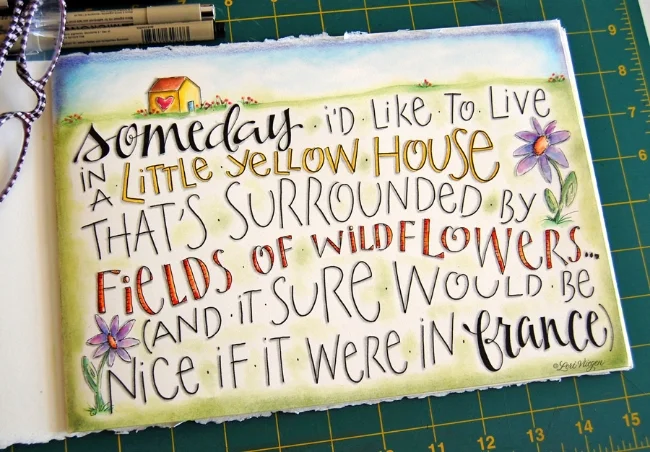 someday i'D LIKE TO LIVE
IN A LiTTLe YeLLOW HOUSe
THAT'S SURROUNDED BY
FieLDS OF WiLDFLOWeRS...
(AND iT SURe WOULD Be
NiCe iF iT WeRe IN france)
9
8
7
6
11
12
13
14
15